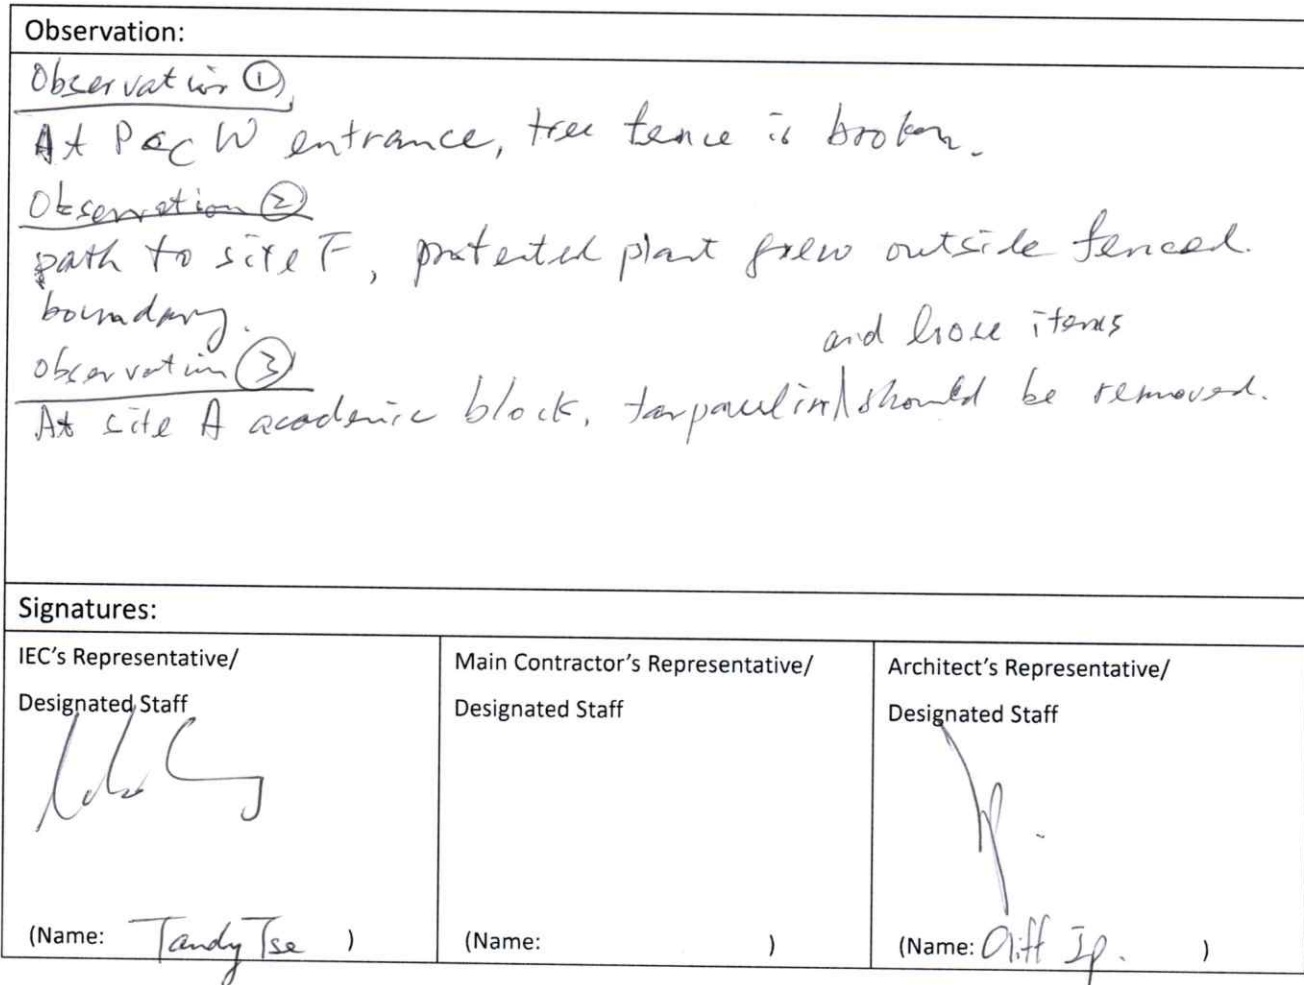 Observation:
Observation ①
At P&C W entrance, tree fence is broken.
Observation ②
path to site F, protected plant grew outside fenced.
boundary.
and loose items
Observation ③
At site A academic block, tarpaulin should be removed.
Signatures:
IEC's Representative/
Designated Staff
Main Contractor's Representative/
Designated Staff
Architect's Representative/
Designated Staff
(Name: Tandy Tse )
(Name: )
(Name: Cliff Ip. )